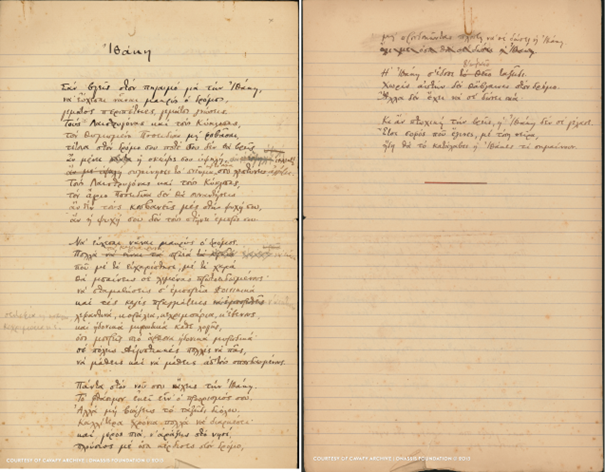 Ἰθάκη
Σὰν βγεῖς στὸν πηγαιμὸ γιὰ τὴν Ἰθάκη,
νὰ εὔχεσαι νἆναι μακρὺς ὁ δρόμος,
γεμάτος περιπέτειες, γεμάτος γνώσεις.
Τοὺς Λαιστρυγόνας καὶ τοὺς Κύκλωπας,
τὸν θυμωμένο Ποσειδῶνα μὴ φοβᾶσαι,
τέτοια στὸν δρόμο σου ποτέ σου δὲν θὰ βρεῖς
ἂν μένει ἡ σκέψις σου ὑψηλή,
συγκίνησις τὸ πνεῦμα
Τοὺς Λαιστρυγόνας καὶ τοὺς Κύκλωπας,
τὸν ἄγριο Ποσειδῶνα δὲν θὰ συναντήσεις
ἂν δὲν τοὺς κουβανεῖς μὲς στὴν ψυχή σου,
ἂν ἡ ψυχή σου δὲν τοὺς στήνει ἐμπρός σου.
Νὰ εὔχεσαι νἆναι μακρὺς ὁ δρόμος.
Πολλὰ τὰ
ποῦ μὲ τί εὐχαρίστησι, μὲ τί χαρὰ
θὰ μπαίνεις σὲ λιμένας πρωτοειδωμένους·
νὰ σταματήσεις σ' ἐμπορεῖα Φοινικικὰ
καὶ τὲς καλὲς πραγμάτειες
καὶ ἡδονικὰ μυρωδικὰ κάθε λογῆς,
ὅσο μπορεῖς πιὸ ἄφθονα ἡδονικὰ μυρωδικὰ
σὲ πόλεις Αἰγυπτιακὲς πολλὲς νὰ πᾶς,
νὰ μάθεις καὶ νὰ μάθεις ἀπ' τοὺς σπουδασμένους.
Πάντα στὸν νοῦ σου νἄχεις τὴν Ἰθάκη.
Τὸ φθάσιμον ἐκεῖ εἶν' ὁ προορισμός σου.
Ἀλλὰ μὴ βιάζεις τὸ ταξεῖδι διόλου.
Καλλίτερα χρόνια πολλὰ νὰ διαρκέσει·
καὶ γέρος πιὰ ν' ἀράξεις στὸ νησί,
πλούσιος μὲ ὅσα κέρδισες στὸν δρόμο,
μὴ προσδοκῶντας πλούτη νὰ σὲ δώσει ἡ Ἰθάκη.
Ἡ Ἰθάκη σ' ἔδωσε τὸ ταξεῖδι.
Χωρὶς αὐτὴν δὲν θἄβγαινες στὸν δρόμο.
Ἄλλα δὲν ἔχει νὰ σὲ δώσει πιά.
Κι ἂν πτωχικὴ τὴν βρεῖς, ἡ Ἰθάκη δὲν σὲ γέλασε.
Ἔτσι σοφὸς ποὺ ἔγινες, μὲ τόση πεῖρα,
ἤδη θὰ τὸ κατάλαβες ἡ Ἰθάκες τί σημαίνουν.
COURTESY OF CAVAFY ARCHIVE | ONASSIS FOUNDATION © 2019
COURTESY OF CAVAFY ARCHIVE | ONASSIS FOUNDATION © 2019